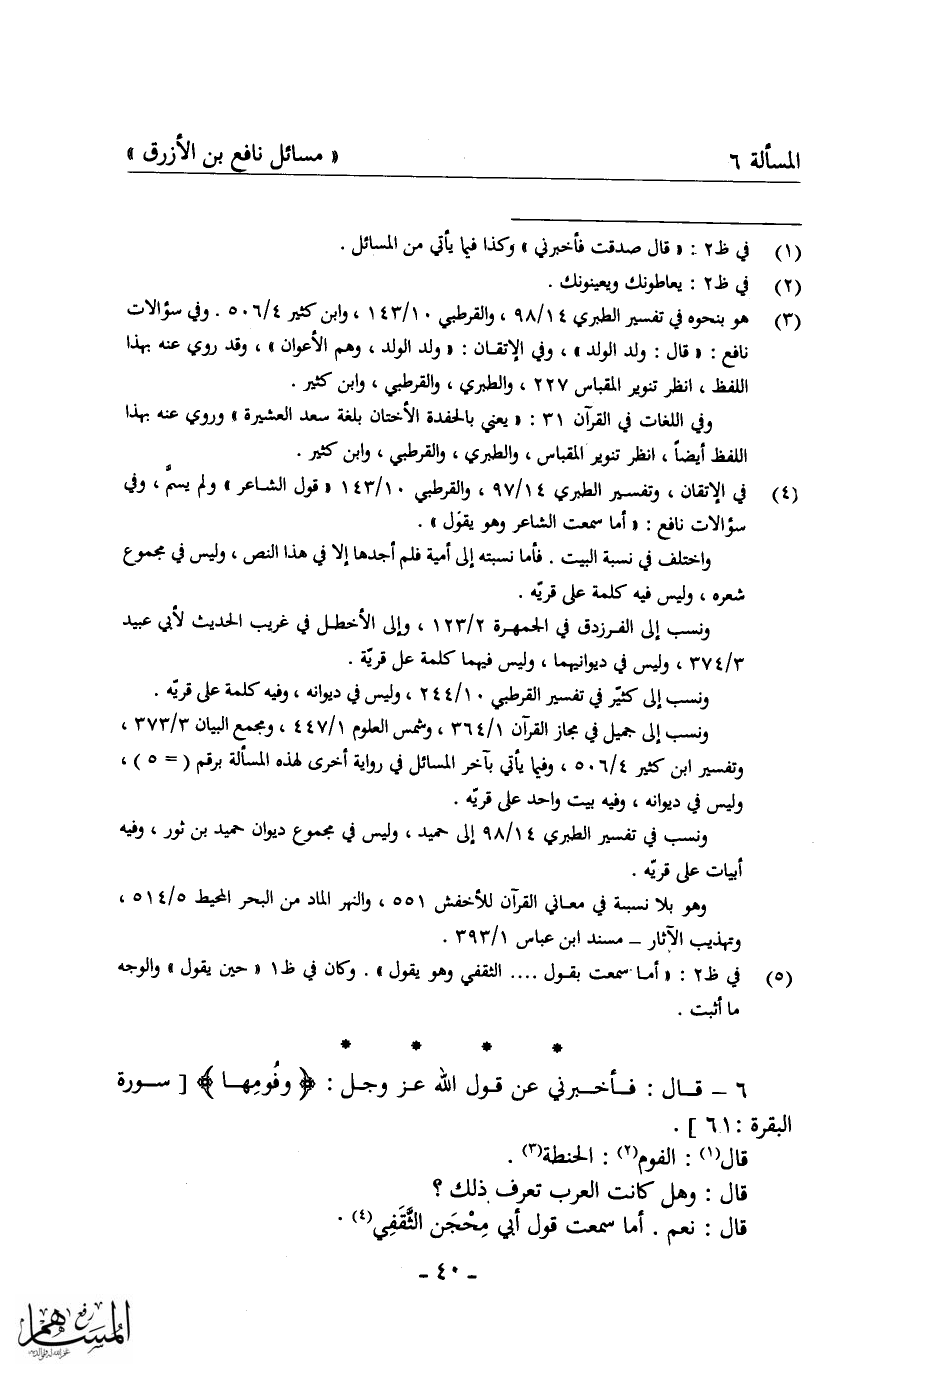 المسألة ٦
« مسائل نافع بن الأزرق »
(١) في ظ٢ : « قال صدقت فأخبرني » وكذا فيما يأتي من المسائل .
(٢) في ظ٢ : يعاطونك ويعينونك .
(٣) هو بنحوه في تفسير الطبري ٩٨/١٤ ، والقرطبي ١٤٣/١٠ ، وابن كثير ٥٠٦/٤ . وفي سؤالات
نافع : « قال : ولد الولد » ، وفي الإتقان : « ولد الولد ، وهم الأعوان » ، وقد روي عنه بهذا
اللفظ ، انظر تنوير المقباس ٢٢٧ ، والطبري ، والقرطبي ، وابن كثير .
وفي اللغات في القرآن ٣١ : « يعني بالحفدة الأختان بلغة سعد العشيرة » وروي عنه بهذا
اللفظ أيضاً ، انظر تنوير المقباس ، والطبري ، والقرطبي ، وابن كثير .
(٤) في الإتقان ، وتفسير الطبري ٩٧/١٤ ، والقرطبي ١٤٣/١٠ « قول الشاعر » ولم يسمَّ ، وفي
سؤالات نافع : « أما سمعت الشاعر وهو يقول » .
واختلف في نسبة البيت . فأما نسبته إلى أمية فلم أجدها إلا في هذا النص ، وليس في مجموع
شعره ، وليس فيه كلمة على قريّه .
ونسب إلى الفرزدق في الجمهرة ١٢٣/٢ ، وإلى الأخطل في غريب الحديث لأبي عبيد
٣٧٤/٣ ، وليس في ديوانيهما ، وليس فيهما كلمة عل قريّة .
ونسب إلى كثيّر في تفسير القرطبي ٢٤٤/١٠ ، وليس في ديوانه ، وفيه كلمة على قريّه .
ونسب إلى جميل في مجاز القرآن ٣٦٤/١ ، وشمس العلوم ٤٤٧/١ ، ومجمع البيان ٣٧٣/٣ ،
وتفسير ابن كثير ٥٠٦/٤ ، وفيما يأتي بآخر المسائل في رواية أخرى لهذه المسألة برقم ( = ٥ ) ،
وليس في ديوانه ، وفيه بيت واحد على قريّه .
ونسب في تفسير الطبري ٩٨/١٤ إلى حميد ، وليس في مجموع ديوان حميد بن ثور ، وفيه
أبيات على قريّه .
وهو بلا نسبة في معاني القرآن للأخفش ٥٥١ ، والنهر الماد من البحر المحيط ٥١٤/٥ ،
وتهذيب الآثار – مسند ابن عباس ٣٩٣/١ .
(٥) في ظ٢ : « أما سمعت بقول .... الثقفي وهو يقول » . وكان في ظ١ « حين يقول » والوجه
ما أثبت .
* * * *
٦ – قال : فأخبرني عن قول الله عز وجل : ﴿ وفُومِها ﴾ [ سورة
البقرة : ٦١ ] .
قال(١) : الفوم(٢) : الحنطة(٣) .
قال : وهل كانت العرب تعرف ذلك ؟
قال : نعم . أما سمعت قول أبي مِحْجَن الثَّقَفِي(٤) .
- ٤٠ -
رفع
المساهم